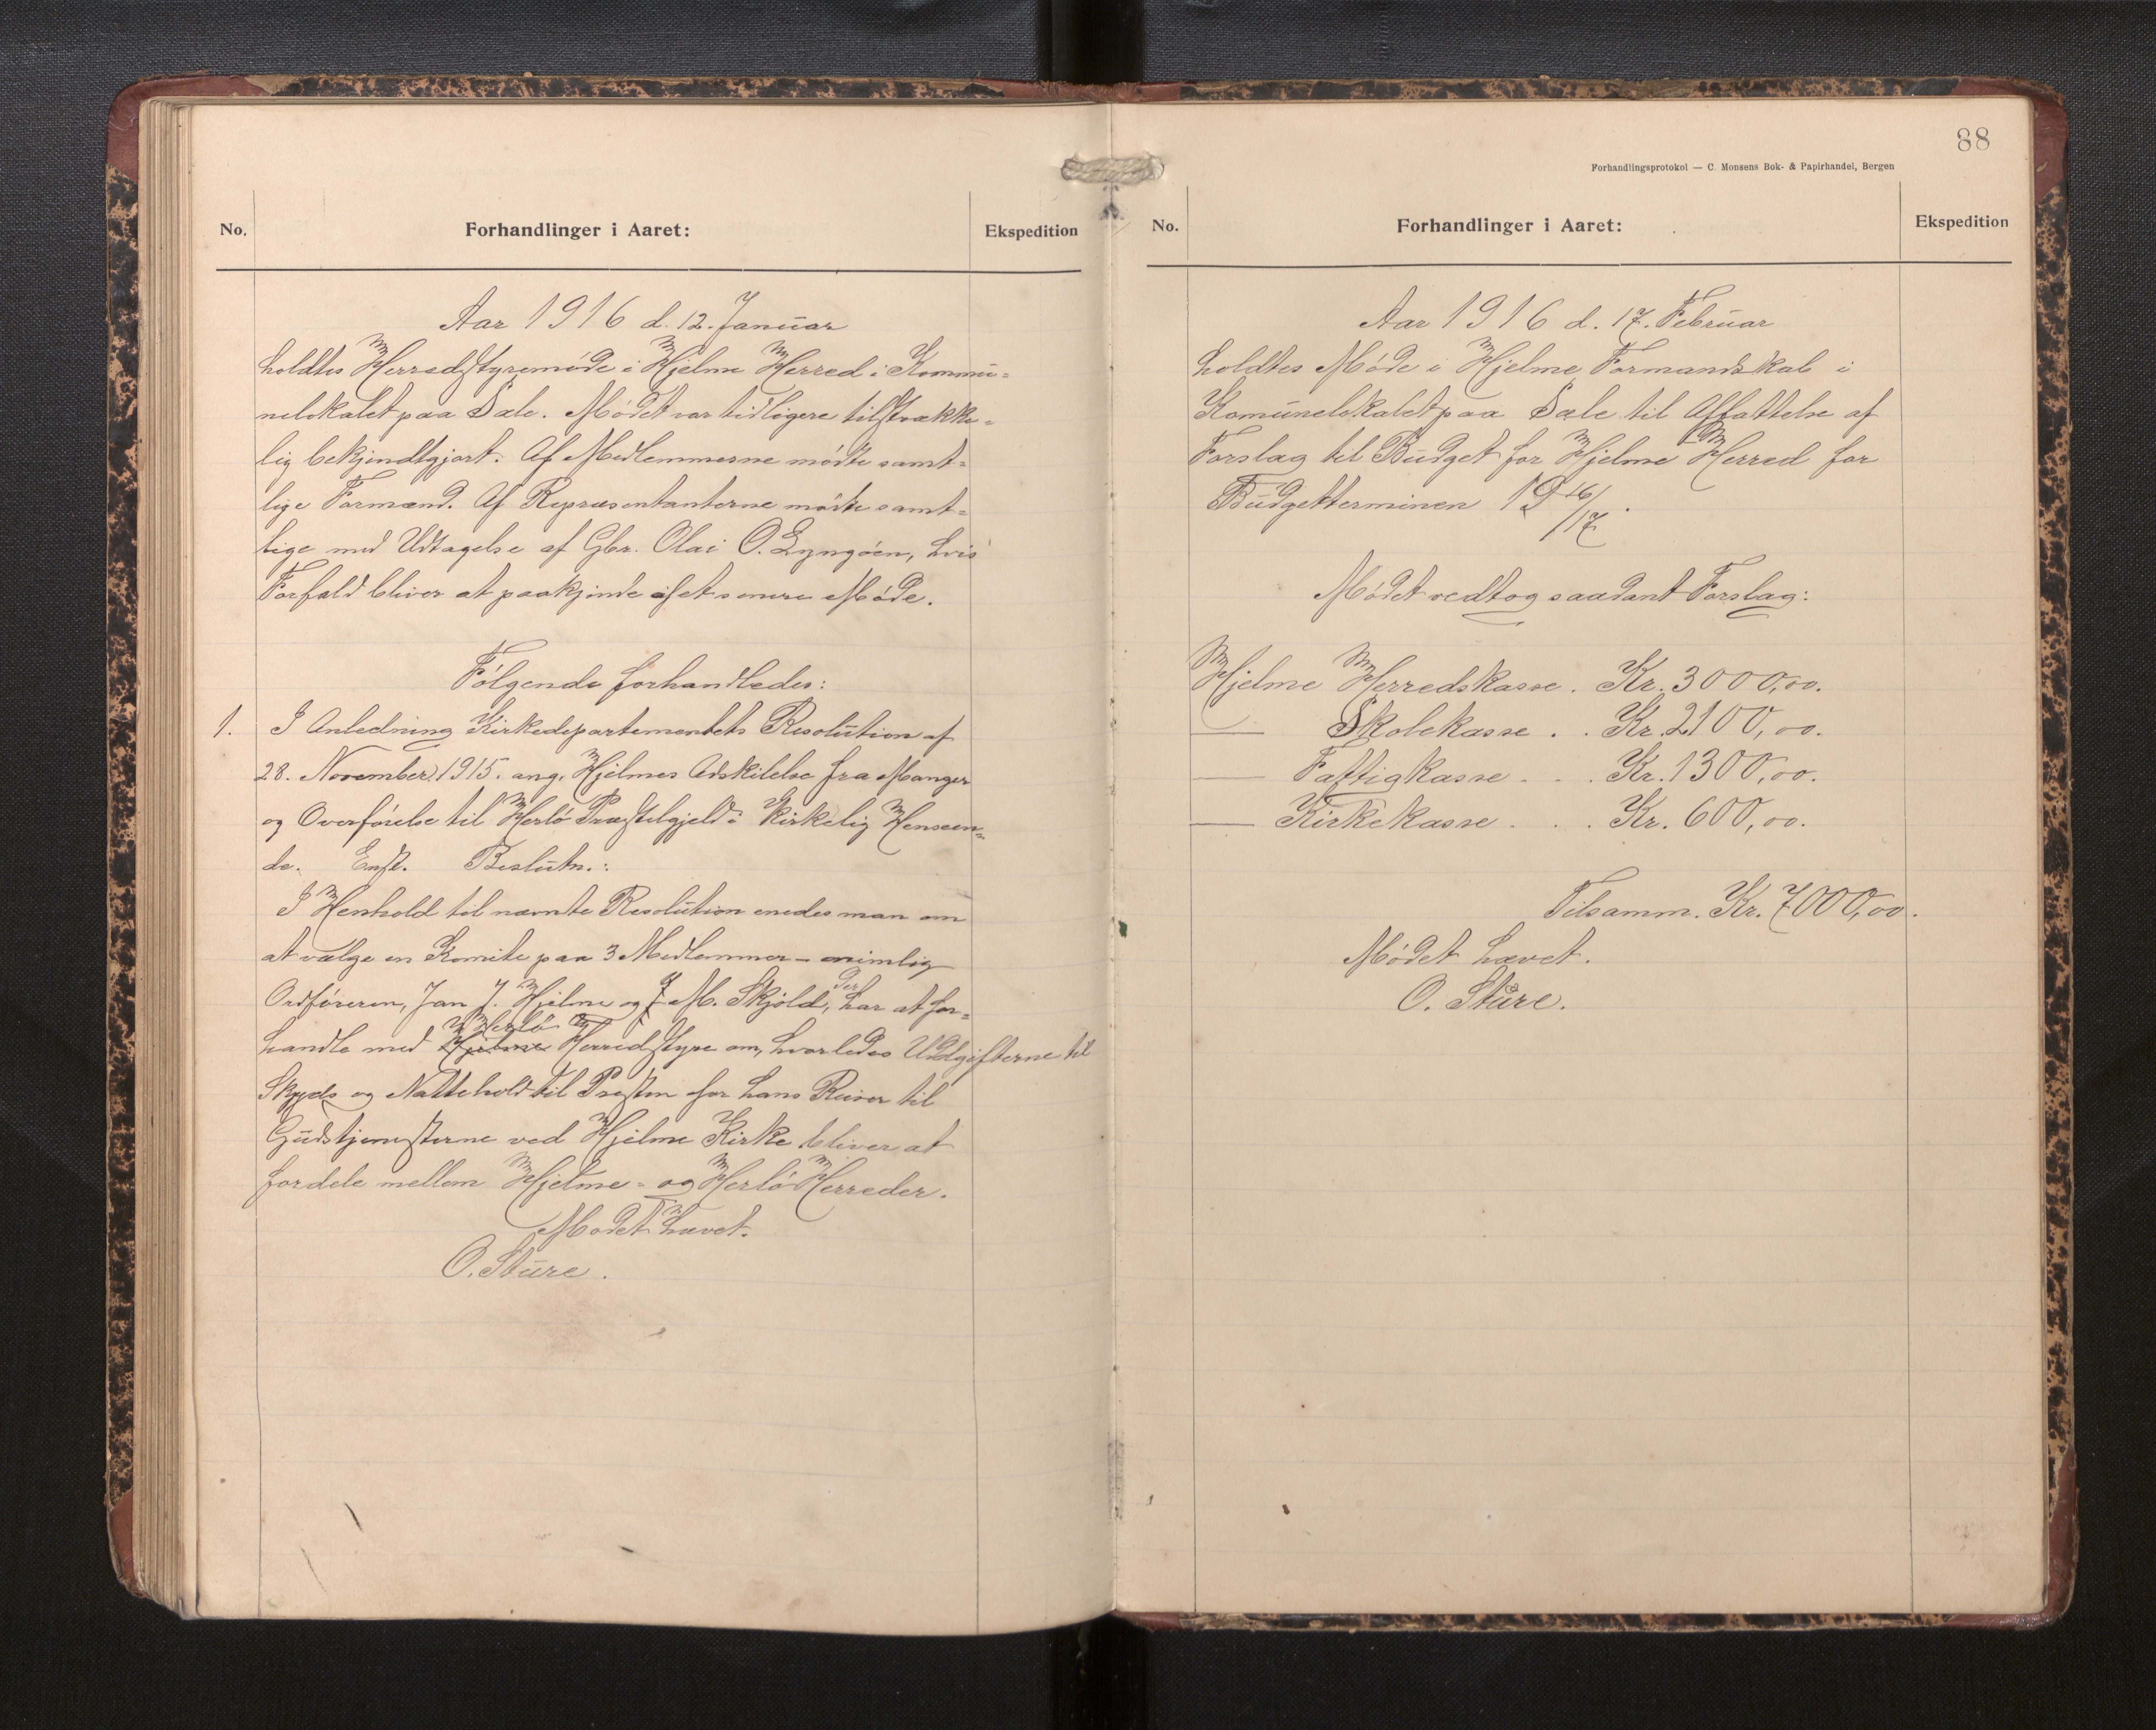 No.
Forhandlinger i Aaret:
Ekspedition
Aar 1916 d. 12. Januar
holdtes Herredstyremøde i Hjelme Herred i Kommu=
nelokalet paa Sæle. Mødet var tidligere tilstrække=
lig bekjendtgjort. Af Medlemmerne mødte samt=
lige Formænd. Af Repræsentanterne mødte samt=
lige med Udtagelse af Gbr. Olai O. Lyngöen, hvis
Forfald bliver at paakjende i et senere Møde.
Følgende forhandledes:
1. I Anledning Kirkedepartementets Resolution af
28. November 1915. ang. Hjelmes Adskilelse fra Manger
og Overførelse til Herlö Præstegjeld i kirkelig Henseen=
de. Enst. Beslutn.:
I Henhold til nævnte Resolution enedes man om
at vælge en Komite paa 3 Medlemmer – nemlig
Ordføreren, Jan J. Hjelme og J. M. Skjold, der har at for=
handle med Hjelme Herlö Herredstyre om, hvorledes Udgifterne til
Skyds og Natteholdt til Presten for hans Reiser til
Gudstjenesterne ved Hjelme Kirke bliver at
fordele mellem Hjelme- og Herlö Herreder.
Mødet hævet.
O. Sture.
88
Forhandlingsprotokol — C. Monsens Bok- & Papirhandel, Bergen
No.
Forhandlinger i Aaret:
Ekspedition
Aar 1916 d. 17. Februar
holdtes Møde i Hjelme Formandskab i
Komunelokalet paa Sæle til Affattelse af
Forslag til Budget for Hjelme Herred for
Budgetterminen 1916/17.
Mødet vedtog saadant Forslag:
Hjelme Herredskasse . Kr. 3000,00.
— Skolekasse . . Kr. 2100,00.
— Fattigkasse . . . Kr. 1300,00.
— Kirkekasse . . . Kr. 600,00.
Tilsamm. Kr. 7000,00.
Mødet hævet.
O. Sture.